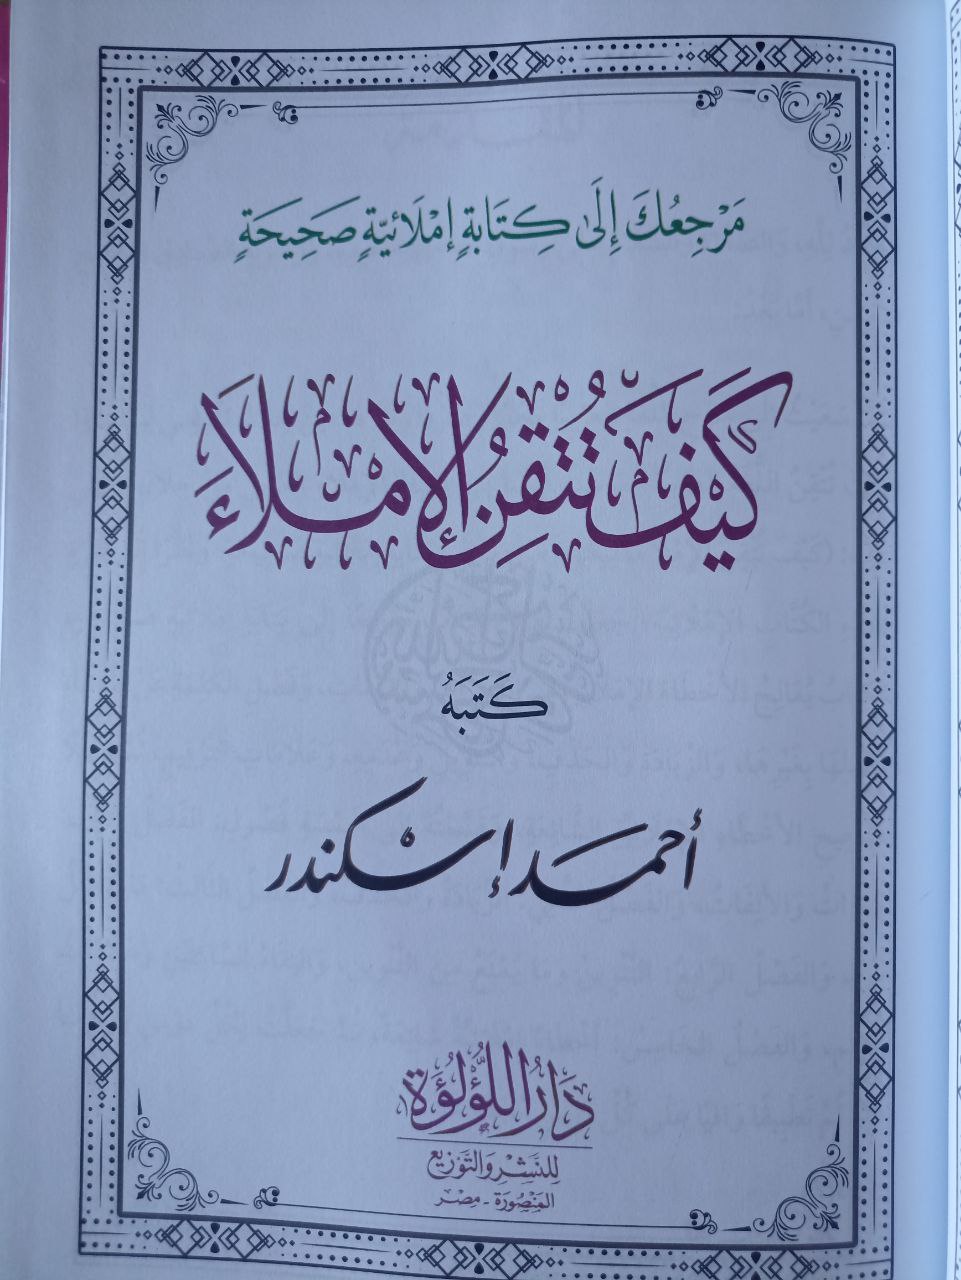 مَرْجِعُكَ إِلَى كِتَابَةٍ إِمْلَائِيَّةٍ صَحِيحَةٍ
كَيْفَ تُتْقِنُ الإِمْلَاءَ
كَتَبَهُ
أحمد إسكندر
دَارُ اللُّؤْلُؤَةِ
لِلنَّشْرِ وَالتَّوْزِيعِ
المَنْصُورَة - مِصْر